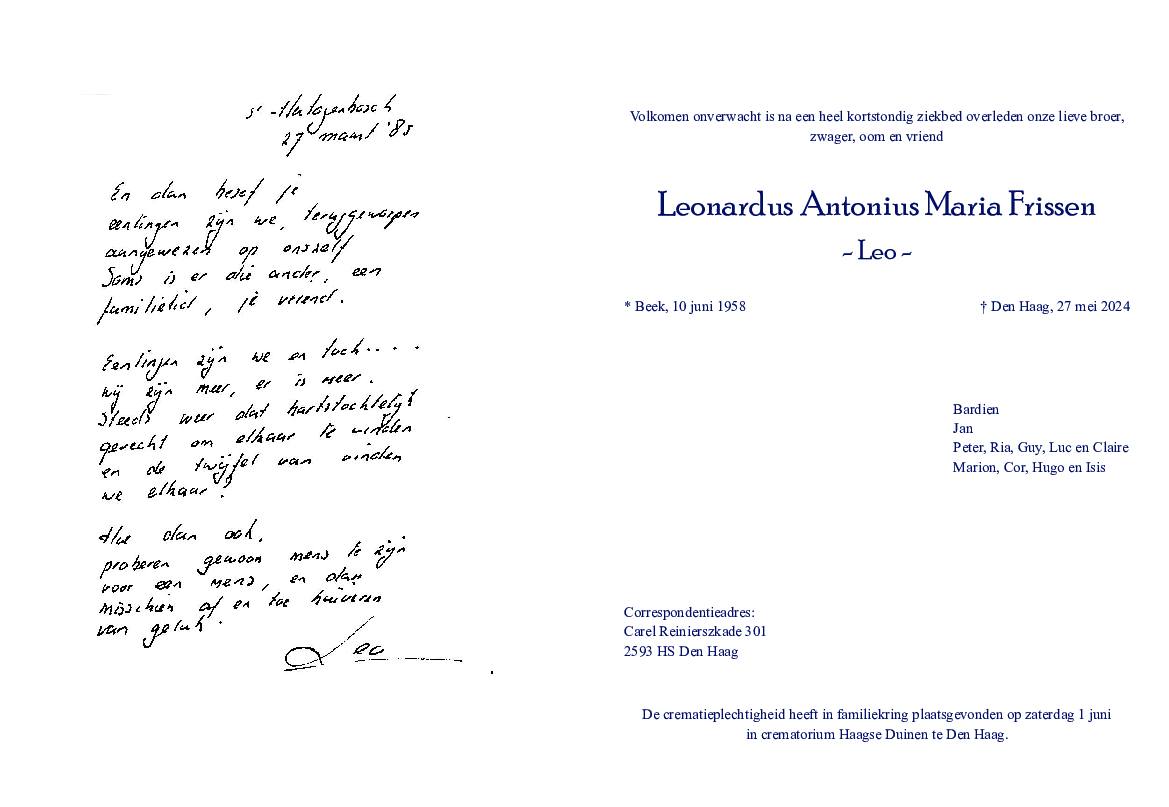 s' -Hertogenbosch
27 maart '85
En dan besef je
eenlingen zijn we, teruggeworpen
aangewezen op onszelf
Soms is er die ander, een
familielid, je vriend.
Eenlingen zijn we en toch....
wij zijn meer, er is meer.
Steeds weer dat hartstochtelijk
gevecht om elkaar te vinden
en de twijfel van vinden
we elkaar?
Hoe dan ook,
proberen gewoon mens te zijn
voor een mens, en dan
misschien af en toe huiveren
van geluk.
Leo
Volkomen onverwacht is na een heel kortstondig ziekbed overleden onze lieve broer,
zwager, oom en vriend
Leonardus Antonius Maria Frissen
~ Leo ~
* Beek, 10 juni 1958 † Den Haag, 27 mei 2024
Bardien
Jan
Peter, Ria, Guy, Luc en Claire
Marion, Cor, Hugo en Isis
Correspondentieadres:
Carel Reinierszkade 301
2593 HS Den Haag
De crematieplechtigheid heeft in familiekring plaatsgevonden op zaterdag 1 juni
in crematorium Haagse Duinen te Den Haag.